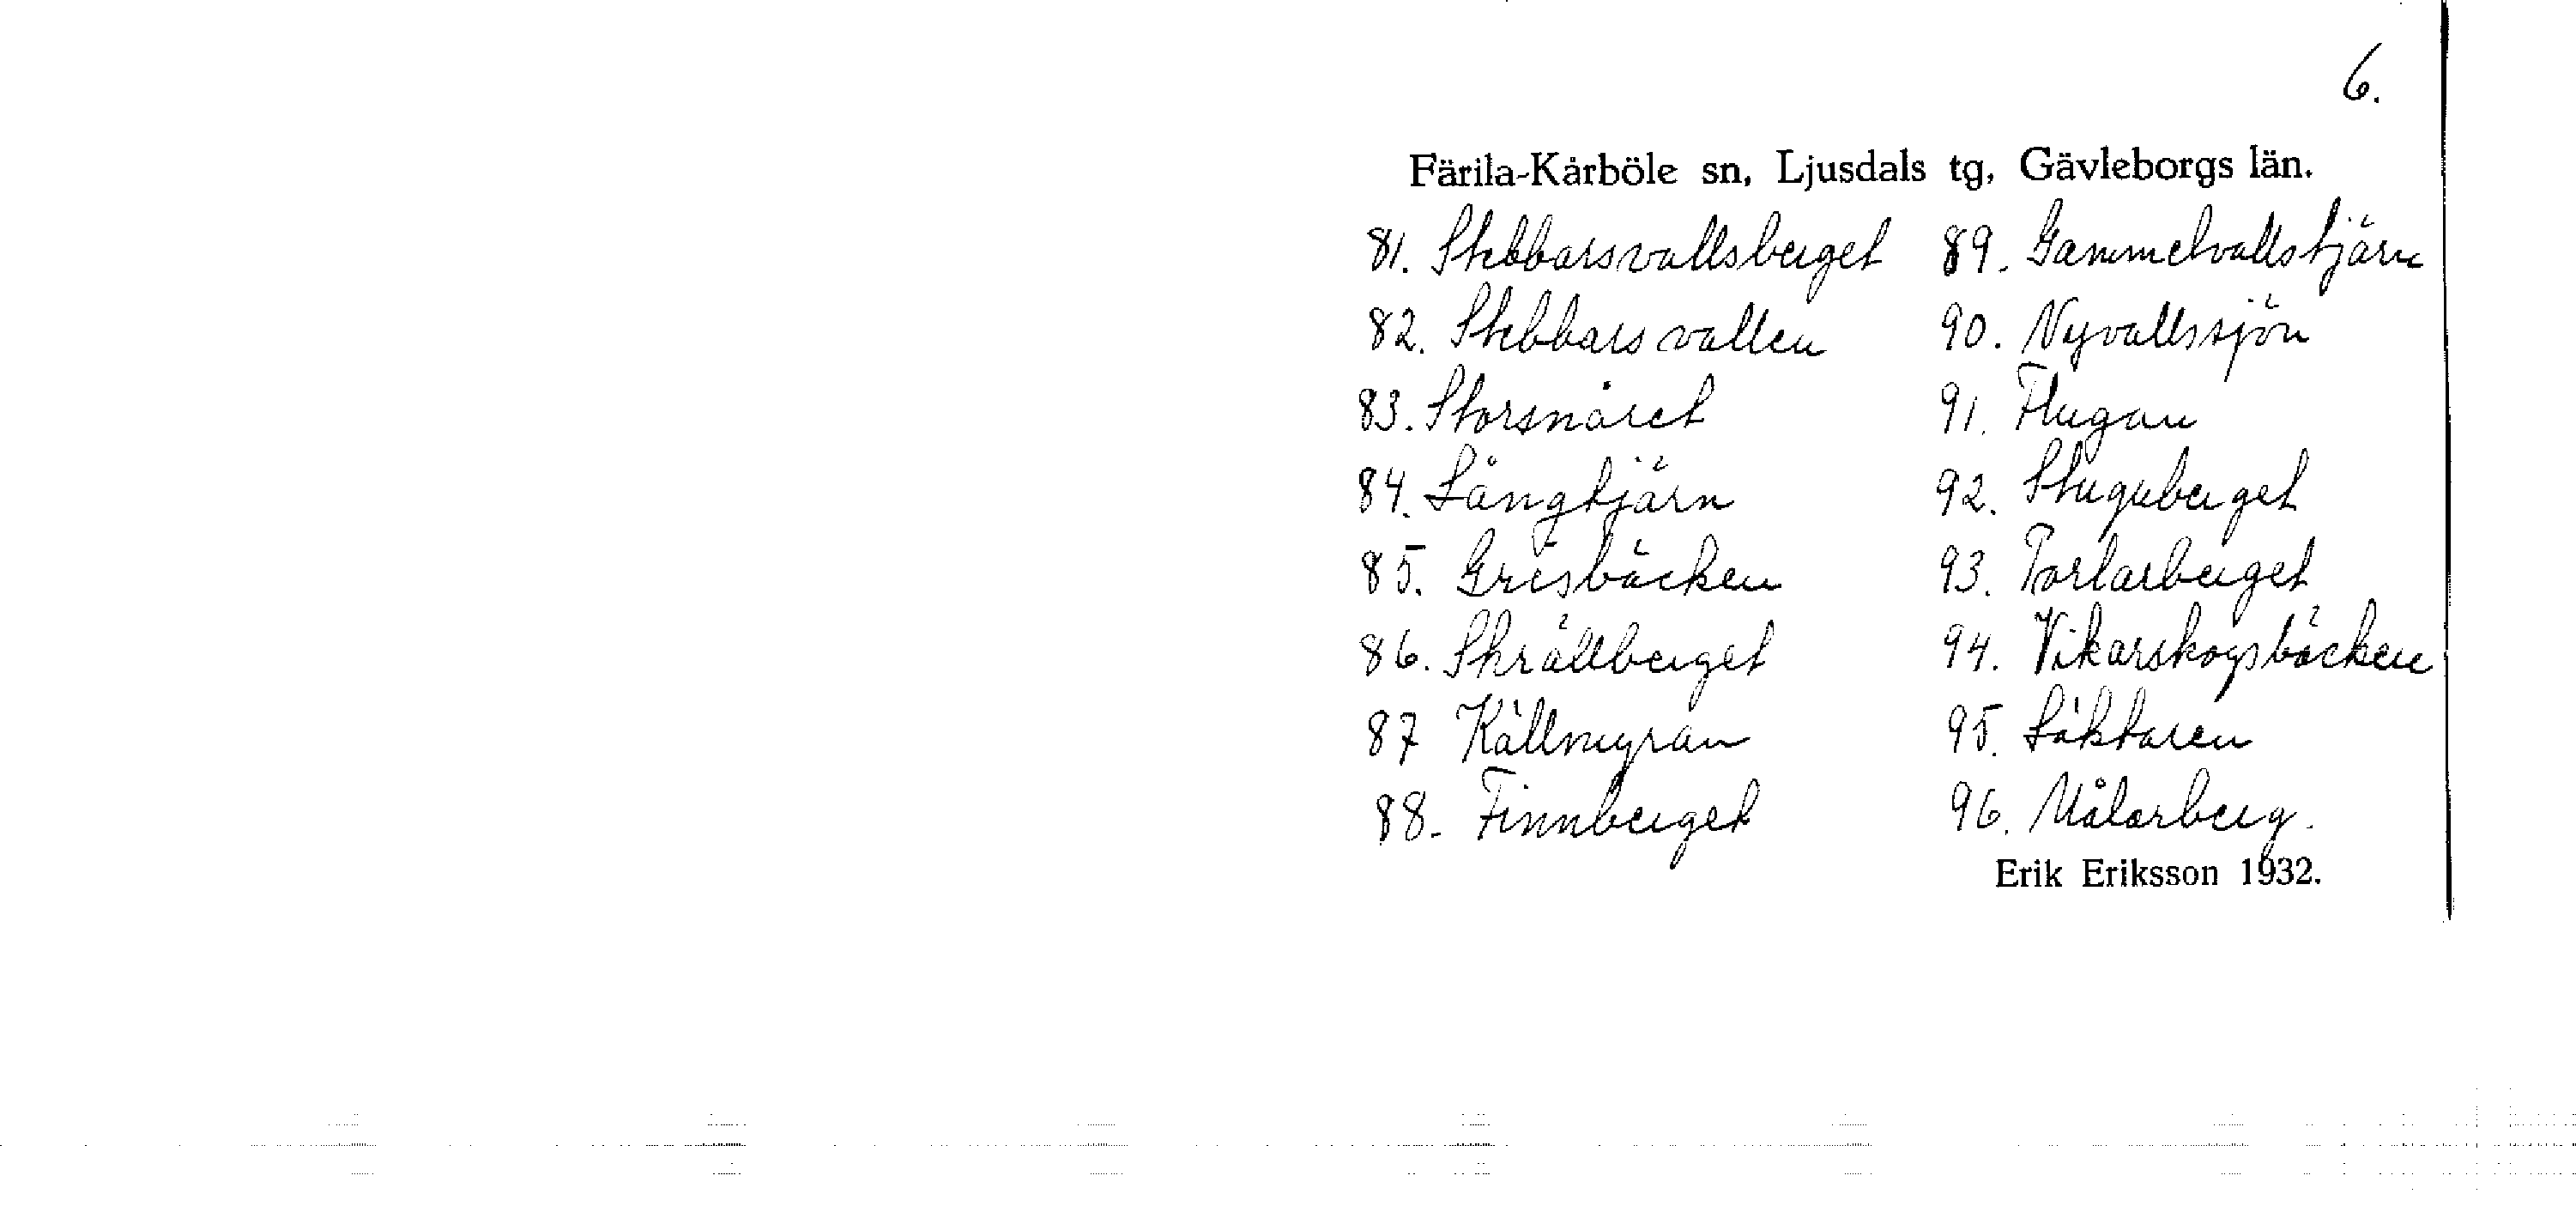 6.
Färila-Kårböle sn, Ljusdals tg, Gävleborgs län.
81. Stebbarsvallsberget
82. Stebbarsvallen
83. Storsnåret
84. Långtjärn
85. Gresbäcken
86. Skrällberget
87 Källmyran
88. Finnberget
89. Gammelvallstjärn
90. Nyvallssjön
91. Flugan
92. Stuguberget
93. Porlarberget
94. Vikarskogsbäcken
95. Läktaren
96. Målarberg.
Erik Eriksson 1932.